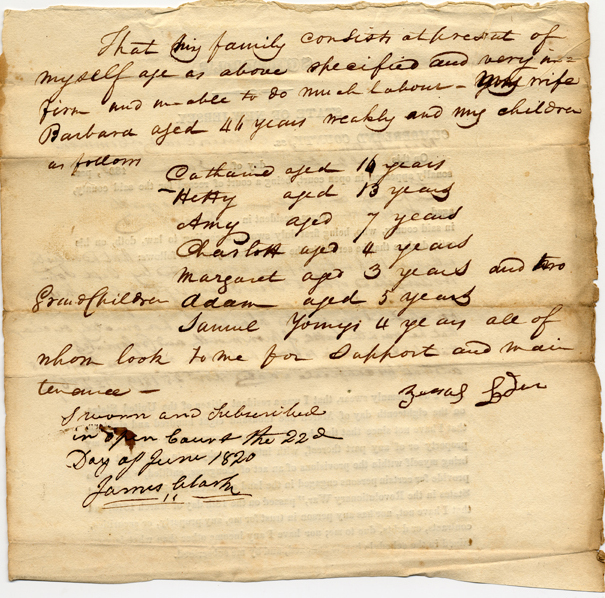 That my family consists at present of
myself age as above specified and very in=
firm and unable to do much labour - My wife
Barbara aged 46 years weakly and my children
as follows
Catharine aged 16 years
Hetty aged 13 years
Amy aged 7 years
Charlott aged 4 years
Margaret aged 3 years and two
Grand Children Adam aged 5 years
Samuel 4 years all of
whom look to me for Support and main
tenance -
Sworn and Subscribed
in open Court the 22d
Day of June 1820
James Clark